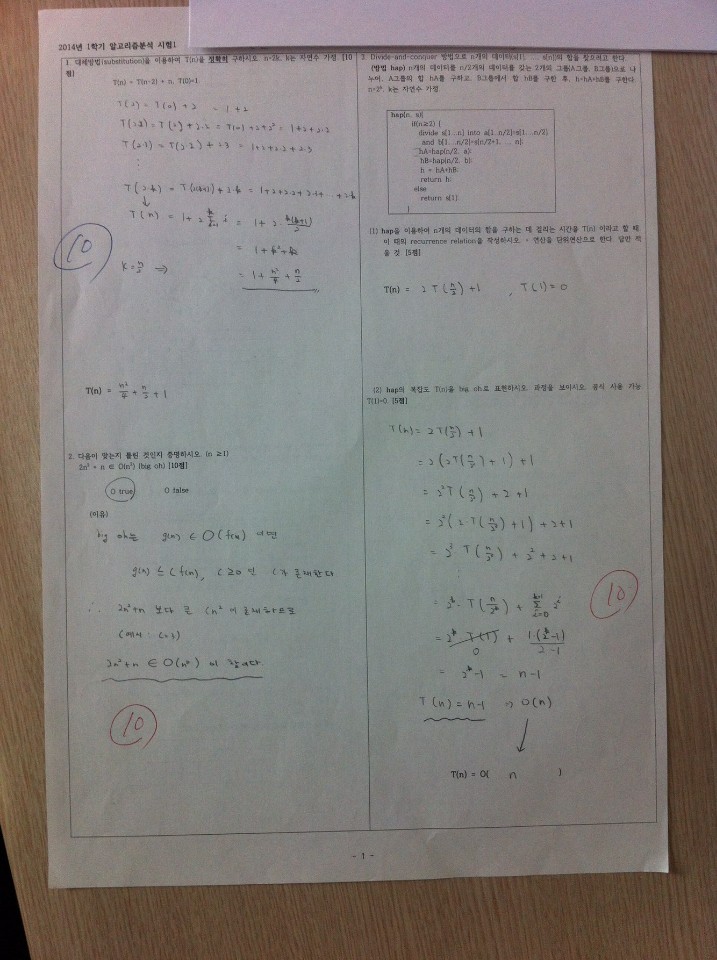 2014년 1학기 알고리즘분석 시험1
1. 대체방법(substitution)을 이용하여 T(n)을 정확히 구하시오. n=2k, k는 자연수 가정. [10
점]
T(n) = T(n-2) + n, T(0)=1
= 1+2
= 1+2+2·2
= 1+2+2·2+2·3
⋮
10
T(n) = n²/4 + n/2 + 1
2. 다음이 맞는지 틀린 것인지 증명하시오. (n ≥1)
2n² + n ∈ O(n²) (big oh) [10점]
O true O false
(이유)
big oh는 g(n) ∈ O(f(n)) 이면
∴ 2n²+n 보다 큰
2n²+n ∈ O(n²) 이 합니다.
10
3. Divide-and-conquer 방법으로 n개의 데이터(s[1], ... s[n])의 합을 찾으려고 한다.
(방법 hap) n개의 데이터를 n/2개의 데이터를 갖는 2개의 그룹(A그룹, B그룹)으로 나
누어, A그룹의 합 hA를 구하고, B그룹에서 합 hB를 구한 후, h=hA+hB를 구한다.
n=2ᵏ, k는 자연수 가정
hap(n, s){
if(n≥2) {
divide s[1...n] into a[1..n/2]=s[1...n/2]
and b[1...n/2]=s[n/2+1, ... n];
hA=hap(n/2, a);
hB=hap(n/2, b);
h = hA+hB;
return h;
else
return s[1]
}
(1) hap을 이용하여 n개의 데이터의 합을 구하는 데 걸리는 시간을 T(n) 이라고 할 때,
이 때의 recurrence relation을 작성하시오. + 연산을 단위연산으로 한다. 답만 적
을 것. [5점]
T(n) = 2T(n/2) + 1 , T(1) = 0
(2) hap의 복잡도 T(n)을 big oh로 표현하시오. 과정을 보이시오. 공식 사용 가능
T(1)=0. [5점]
T(n) = 2T(n/2) + 1
= 2(2T(n/2²) + 1) + 1
= 2²T(n/2²) + 2 + 1
= 2²(2·T(n/2³) + 1) + 2+1
= 2³ T(n/2³) + 2² + 2+1
= 2ᵏ-1 = n-1
T(n) = n-1 ⇒ O(n)
10
T(n) = O( n )
- 1 -